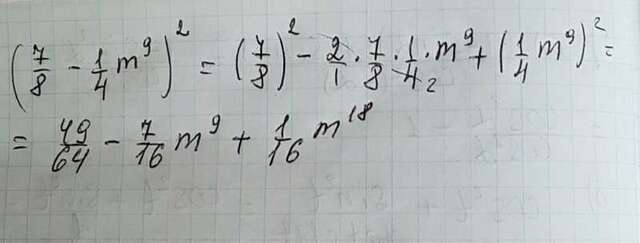 (7/8 - 1/4 m⁹)² = (7/8)² - 2/1 · 7/8 · 1/4₂ · m⁹ + (1/4 m⁹)² =
= 49/64 - 7/16 m⁹ + 1/16 m¹⁸